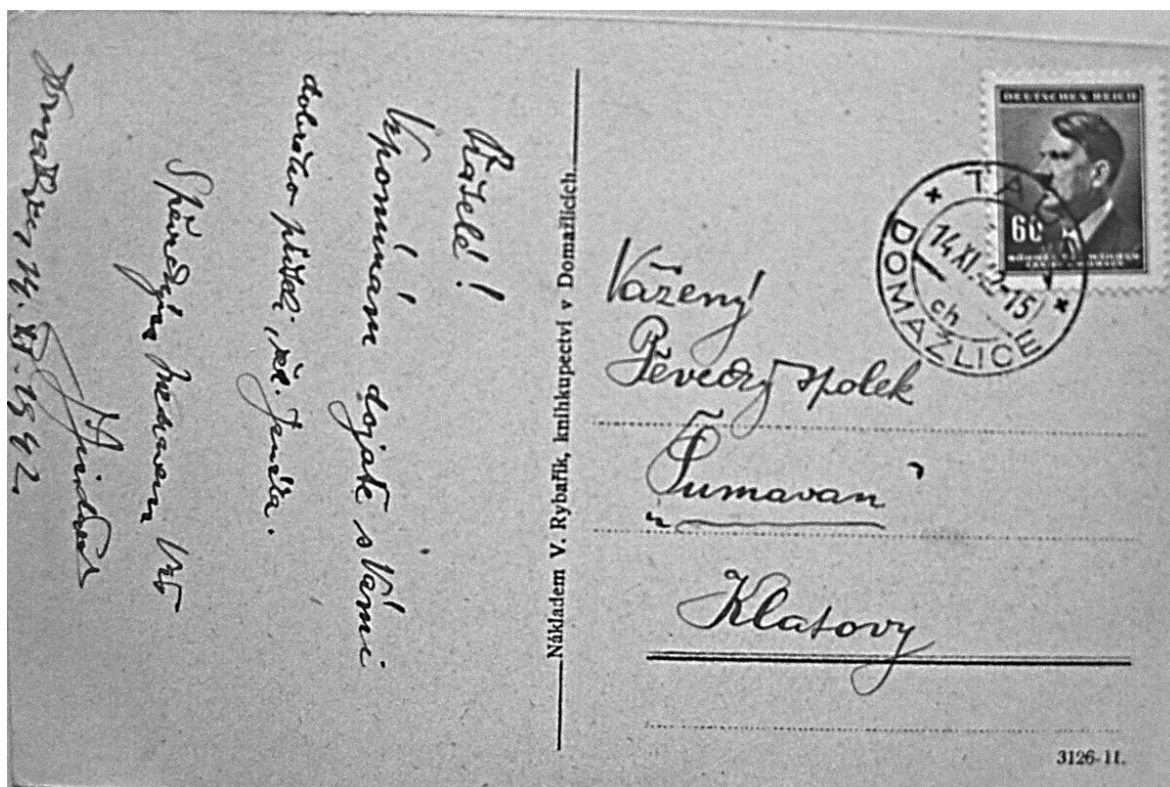 Přátelé!
Vzpomínám dojatě s Vámi
dobrého přítele, př.
Spěvákým nazdarem Váš
Domažlice 14. XI. 1942.
Nákladem V. Rybařík, knihkupectví v Domažlicích.
DEUTSCHES REICH
60
TAUS
14 XI 42-15
ch
DOMAŽLICE
Vážený
Pěvecký spolek
„Šumavan"
Klatovy
3126-11.